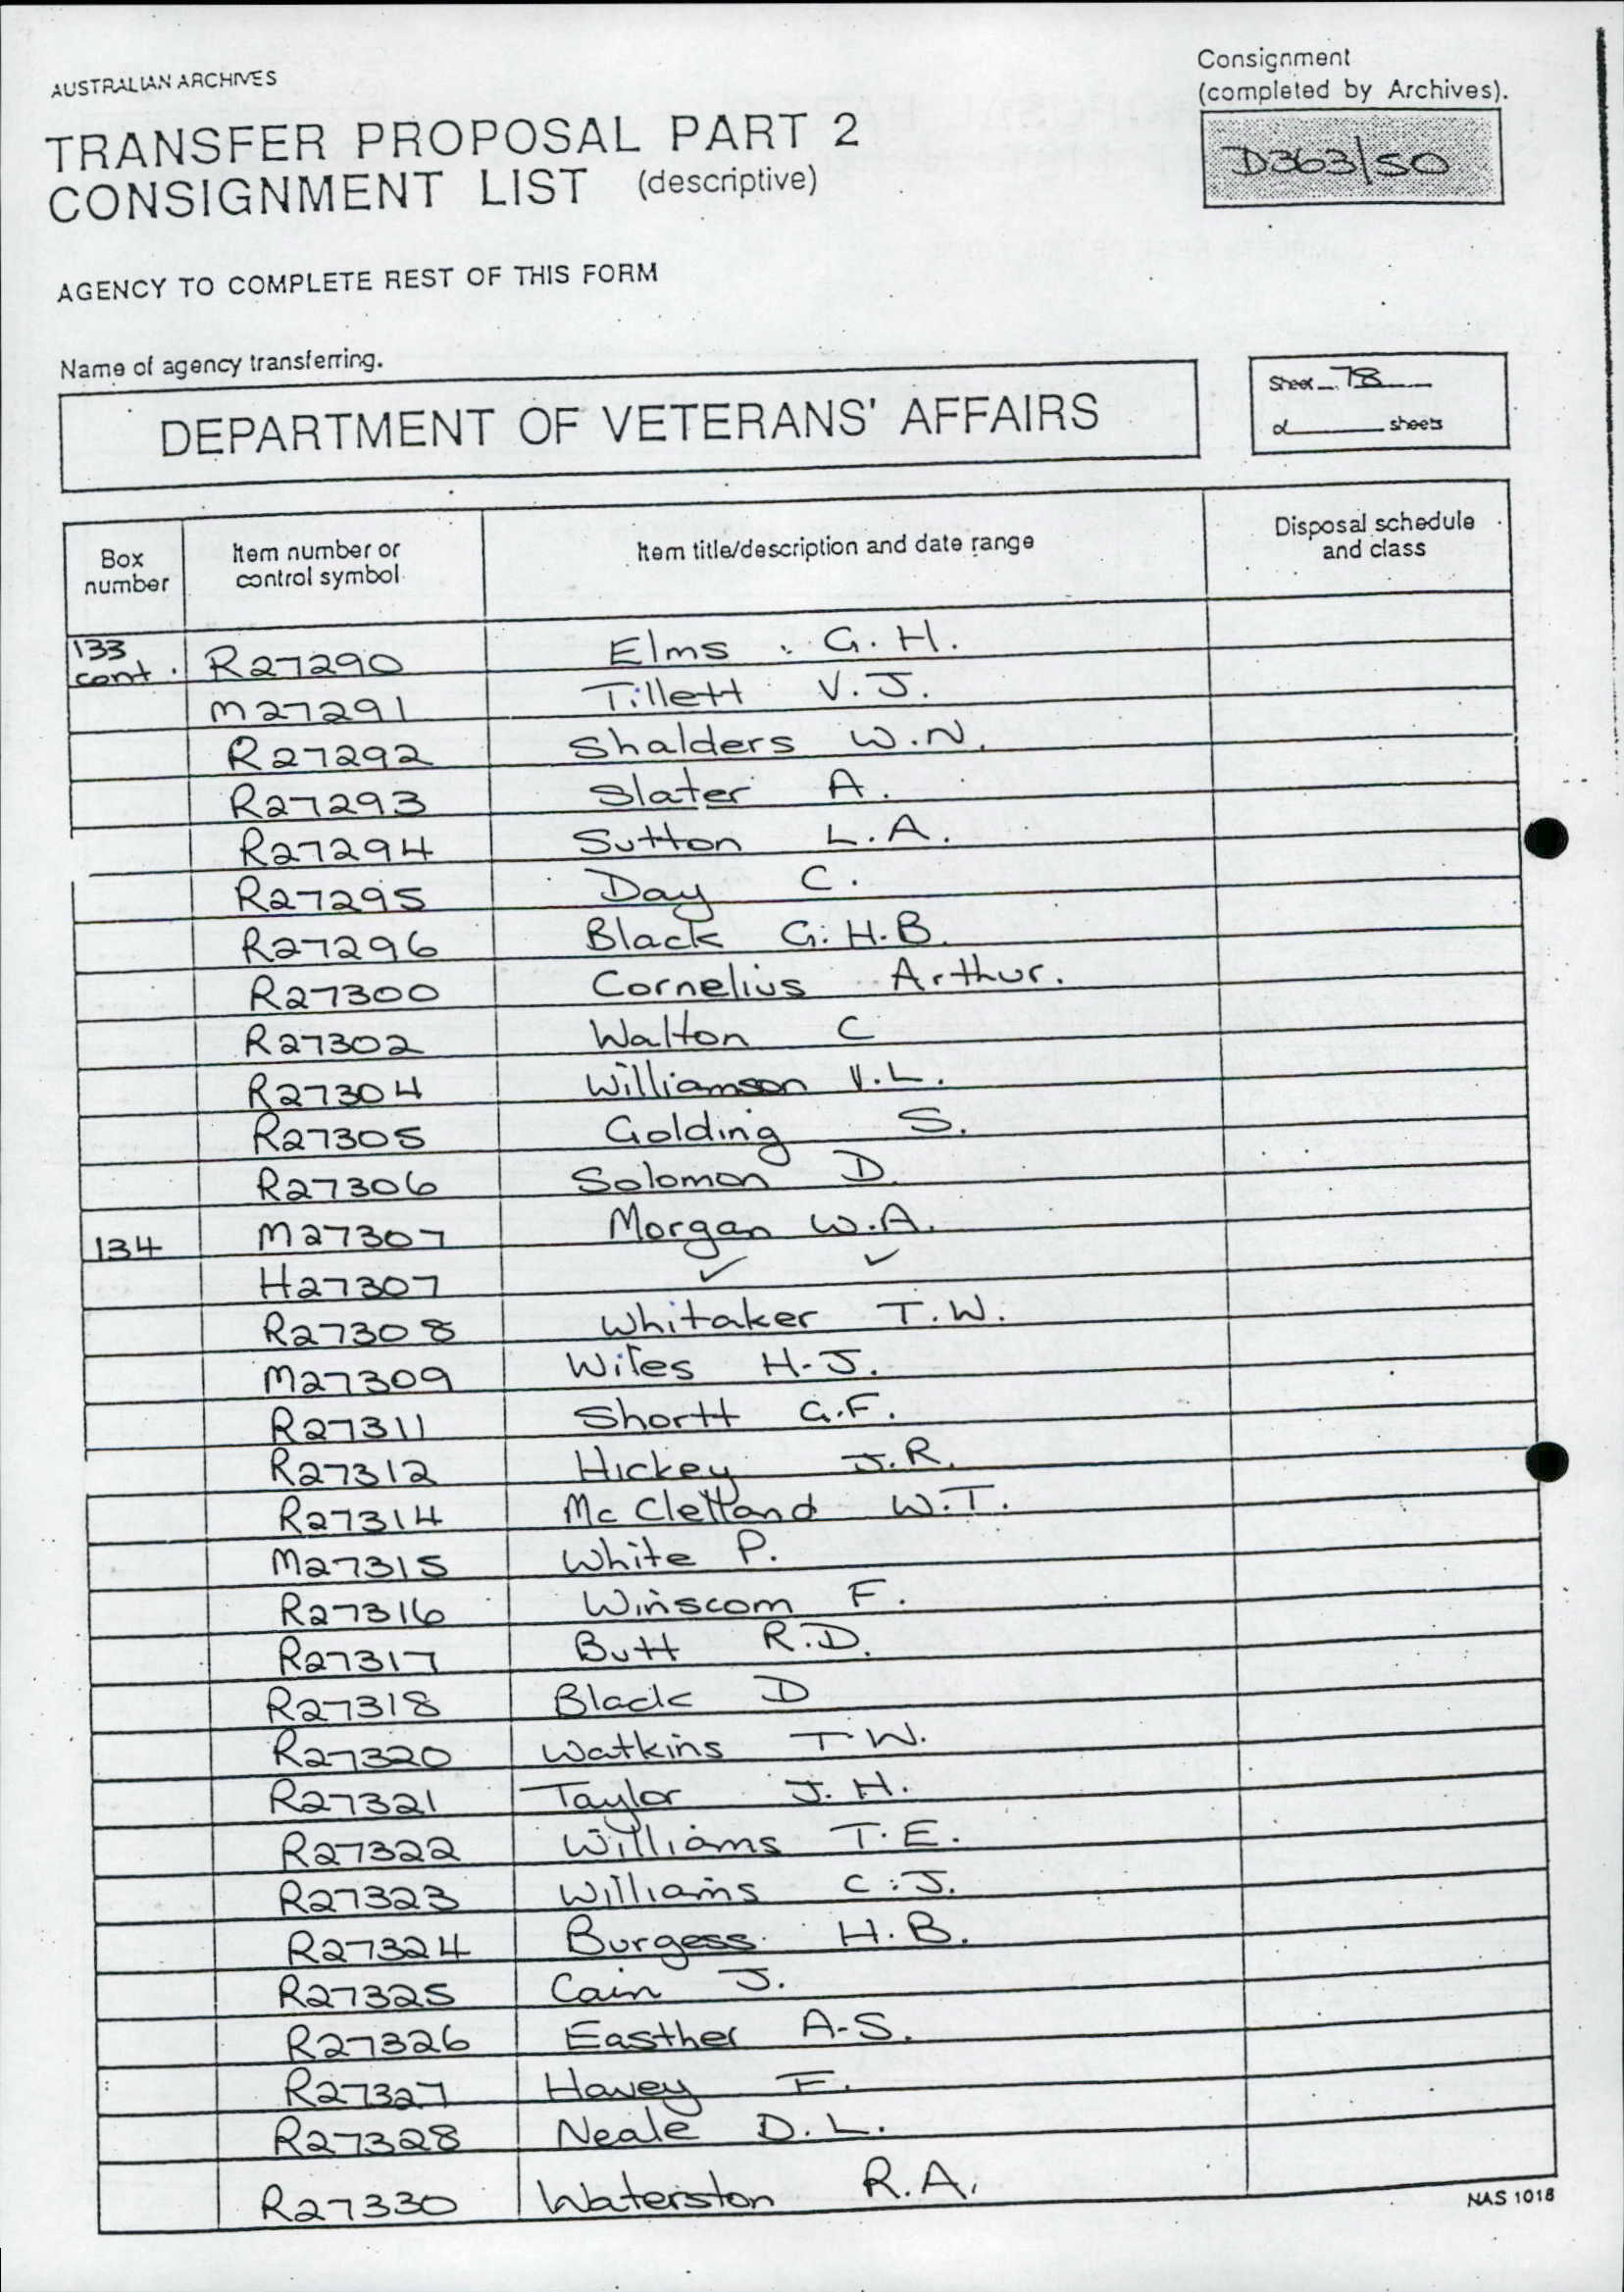 AUSTRALIAN ARCHIVES
Consignment
(completed by Archives).
D363/50
TRANSFER PROPOSAL PART 2
CONSIGNMENT LIST (descriptive)
AGENCY TO COMPLETE REST OF THIS FORM
Name of agency transferring.
DEPARTMENT OF VETERANS' AFFAIRS
Sheet 78
of sheets
Box number | Item number or control symbol | Item title/description and date range | Disposal schedule and class
133 cont. R27290 Elms G.H.
M27291 Tillett V.J.
R27292 Shalders W.N.
R27293 Slater A.
R27294 Sutton L.A.
R27295 Day C.
R27296 Black G.H.B.
R27300 Cornelius Arthur.
R27302 Walton C
R27304 Williamson V.L.
R27305 Golding S.
R27306 Solomon D.
134 M27307 Morgan W.A.
H27307 ✓ ✓
R27308 Whitaker T.W.
M27309 Wiles H.J.
R27311 Shortt G.F.
R27312 Hickey J.R.
R27314 McClelland W.T.
M27315 White P.
R27316 Winscom F.
R27317 Butt R.D.
R27318 Black D
R27320 Watkins T.W.
R27321 Taylor J.H.
R27322 Williams T.E.
R27323 Williams C.J.
R27324 Burgess H.B.
R27325 Cain J.
R27326 Easther A.S.
R27327 Havey F.
R27328 Neale D.L.
R27330 Waterston R.A.
NAS 1018